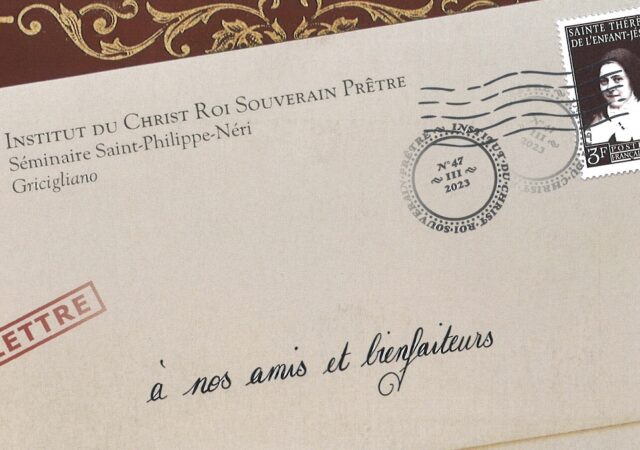 Institut du Christ Roi Souverain Prêtre
Séminaire Saint-Philippe-Néri
Gricigliano
SAINTE THÉRÈSE
DE L'ENFANT-JÉS
3F POSTE
FRANÇAISE
INSTITUT·DU·CHRIST·ROI·SOUVERAIN·PRÊTRE
N°47
III
2023
N°47
III
2023
LETTRE
à nos amis et bienfaiteurs